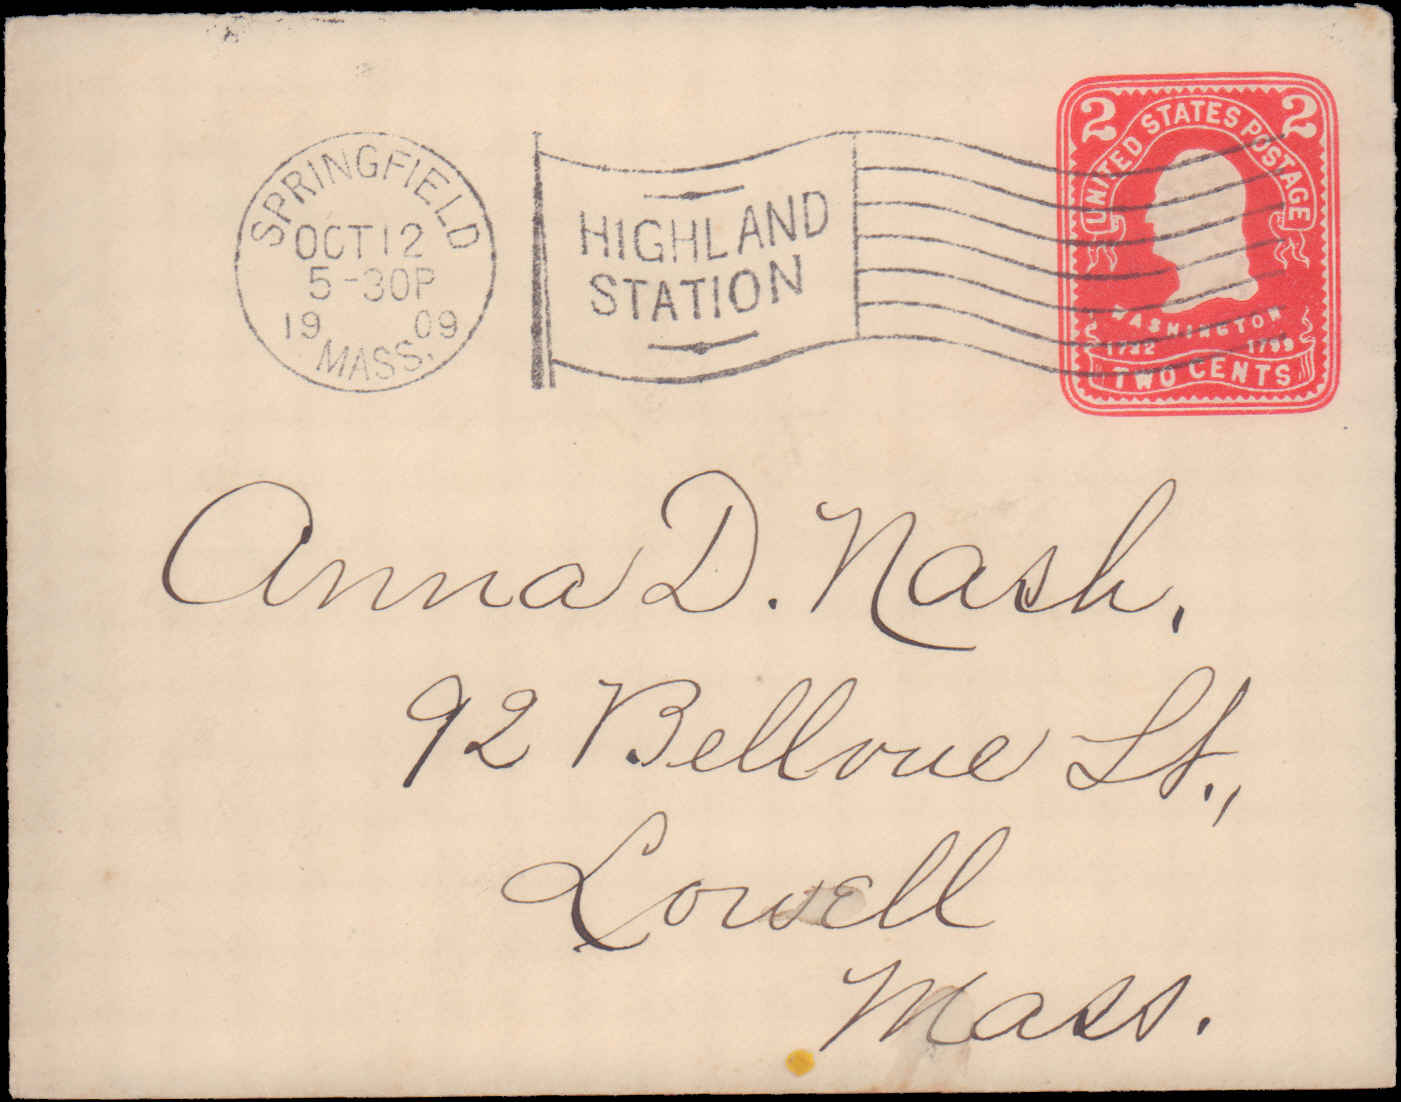 SPRINGFIELD
OCT 12
5-30P
19 09
MASS.
HIGHLAND
STATION
2 2
UNITED STATES POSTAGE
WASHINGTON
1732 1799
TWO CENTS
Anna D. Nash,
92 Bellvue St.,
Lowell
Mass.